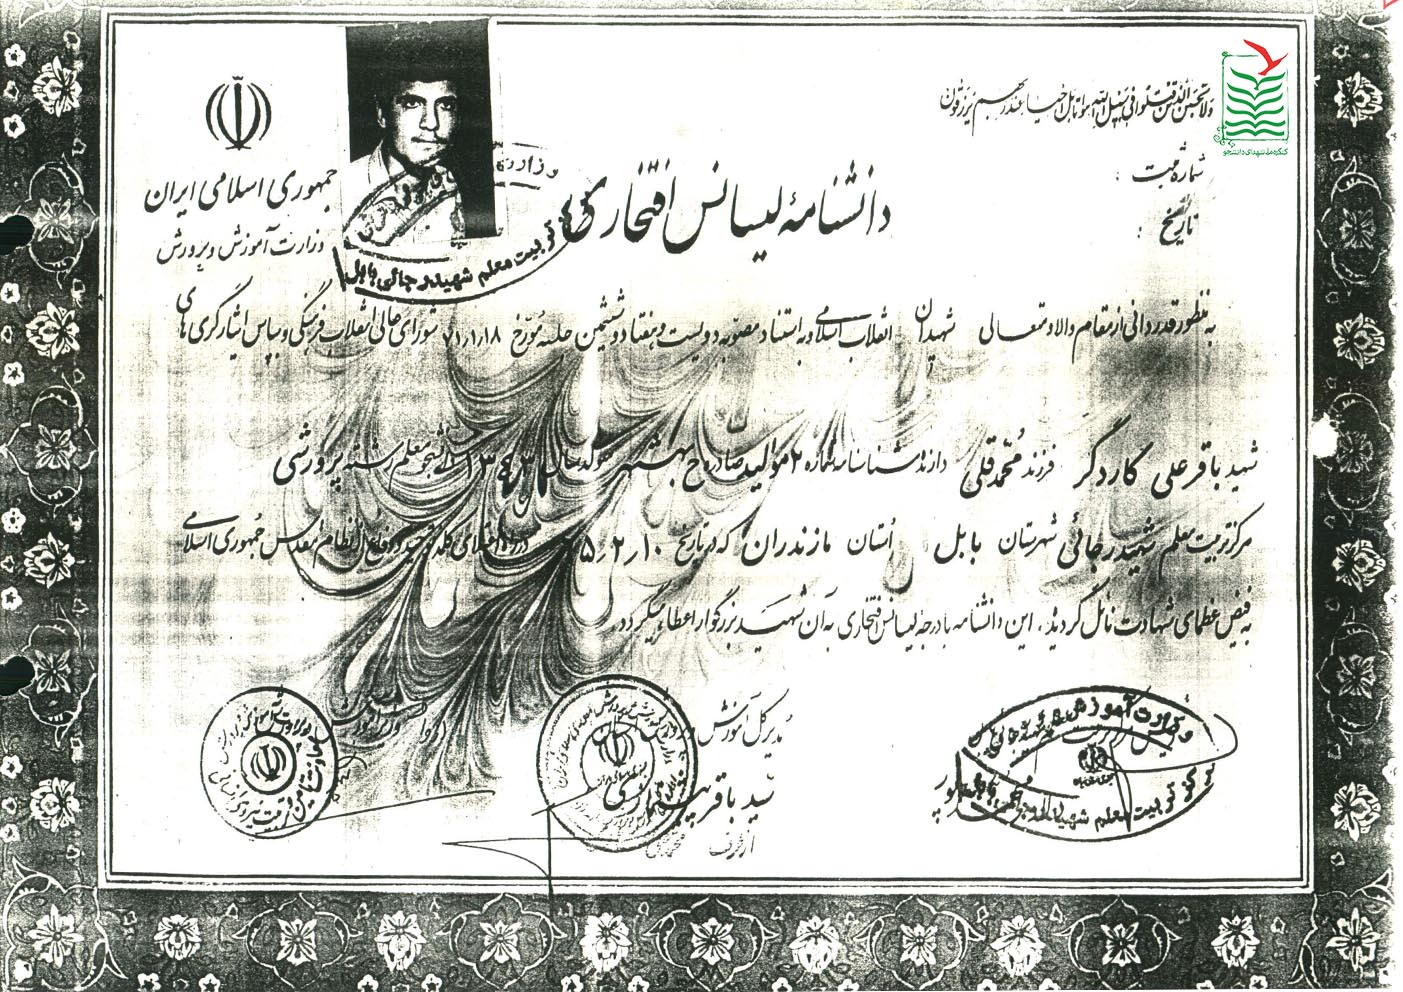 ولا تحسبن الذین قتلوا فی سبیل الله امواتا بل احیاء عند ربهم یرزقون
کنگره ملی شهدای دانشجو
جمهوری اسلامی ایران
وزارت آموزش و پرورش
شماره ثبت :
تاریخ :
دانشنامهٔ لیسانس افتخاری
تربیت معلم شهید رجائی بابل
به منظور قدردانی از مقام والا و متعالی شهیدان انقلاب اسلامی و به استناد مصوبه دویست و هفتاد و ششمین جلسه مورخ ۷۱٫۱٫۱۸ شورای عالی انقلاب فرهنگی و بپاس ایثارگری های
شهید باقرعلی کاردگر فرزند محمدقلی دارنده شناسنامه شماره ۲ صادره از بهشهر متولد سال ۱۳۴۳ دانشجو معلم رشته پرورشی
مرکز تربیت معلم شهید رجائی شهرستان بابل استان مازندران که در تاریخ ۶۵٫۲٫۱۰ در راه اعتلای کلمه توحید و دفاع از نظام مقدس جمهوری اسلامی
به فیض عظمای شهادت نائل گردید، این دانشنامه با درجه لیسانس افتخاری به آن شهید بزرگوار اعطاء میگردد.
مدیر کل آموزش
سید باقر
از طرف
وزارت آموزش و
مرکز تربیت معلم شهید